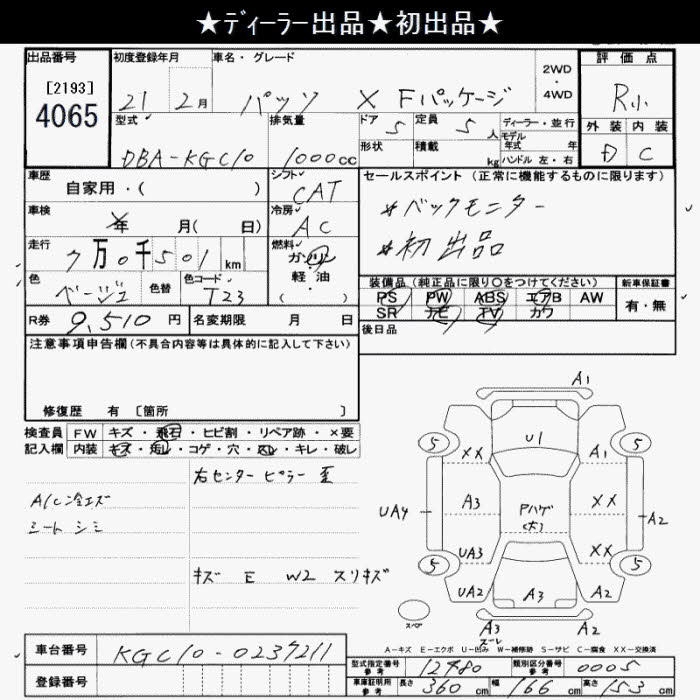 ★ディーラー出品★初出品★
出品番号 初度登録年月 車名・グレード 評価点
[2193]
4065
21 2月 パッソ X Fパッケージ
2WD
・
4WD
R小
型式 排気量 ドア 5 定員 5人 ディーラー・並行
モデル
年式 年
外装 内装
DBA-KGC10 1000cc
形状 積載 kg ハンドル 左・右
D C
車歴 シフト セールスポイント (正常に機能するものに限ります)
自家用・( ) CAT
*バックモニター
車検 年 月( 日) 冷房 AC
*初出品
走行 7万0千501km 燃料 ガソリン
軽・油
( )
色 ベージュ 色替 色コード T23
装備品 (純正品に限り○をつけてください) 新車保証書
PS PW ABS エアB AW 有・無
SR ナビ TV カワ
R券 9,510円 名変期限 月 日
後日品
注意事項申告欄 (不具合内容等は具体的に記入して下さい)
修復歴 有 〔箇所 〕
検査員 FW キズ・飛石・ヒビ割・リペア跡・×要
記入欄 内装 キズ・汚レ・コゲ・穴・スレ・キレ・破レ
右センターピラー歪
A/C冷エズ
シート シミ
キズ E W2 スリキズ
A1
5 U1 5
XX A1
UA4 A3 Pハゲ XX A2
(大)
UA3 XX
5 5
UA2 A3 A2
スペア
A3 A2
ズーレ
A-キズ E-エクボ U-凹み W-補修跡 S-サビ C-腐食 XX-交換済
車台番号 KGC10-0237211
登録番号
型式指定番号 参考 12480 類別区分番号 参考 0005
車庫証明用 参考 長さ 360cm 幅 166cm 高さ 153cm